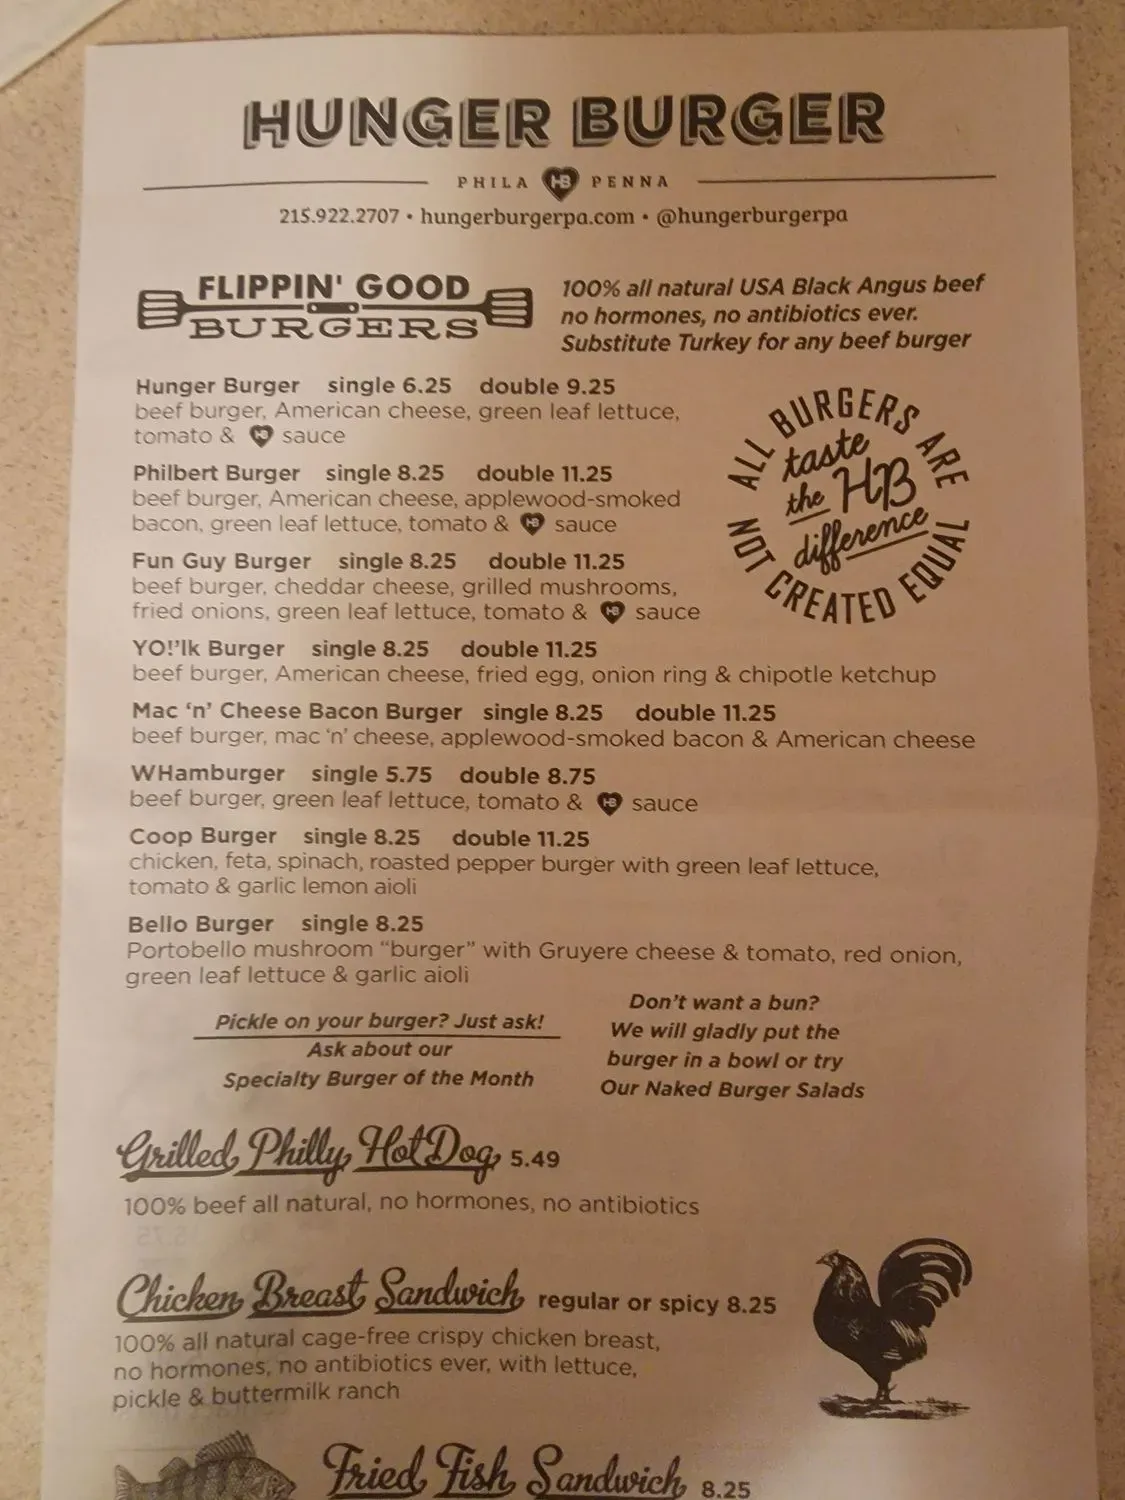 HUNGER BURGER
PHILA HB PENNA
215.922.2707 • hungerburgerpa.com • @hungerburgerpa
FLIPPIN' GOOD
BURGERS
100% all natural USA Black Angus beef
no hormones, no antibiotics ever.
Substitute Turkey for any beef burger
Hunger Burger single 6.25 double 9.25
beef burger, American cheese, green leaf lettuce,
tomato & HB sauce
Philbert Burger single 8.25 double 11.25
beef burger, American cheese, applewood-smoked
bacon, green leaf lettuce, tomato & HB sauce
Fun Guy Burger single 8.25 double 11.25
beef burger, cheddar cheese, grilled mushrooms,
fried onions, green leaf lettuce, tomato & HB sauce
ALL BURGERS ARE
taste
the HB
difference
NOT CREATED EQUAL
YO!'lk Burger single 8.25 double 11.25
beef burger, American cheese, fried egg, onion ring & chipotle ketchup
Mac ‘n’ Cheese Bacon Burger single 8.25 double 11.25
beef burger, mac ‘n’ cheese, applewood-smoked bacon & American cheese
WHamburger single 5.75 double 8.75
beef burger, green leaf lettuce, tomato & HB sauce
Coop Burger single 8.25 double 11.25
chicken, feta, spinach, roasted pepper burger with green leaf lettuce,
tomato & garlic lemon aioli
Bello Burger single 8.25
Portobello mushroom “burger” with Gruyere cheese & tomato, red onion,
green leaf lettuce & garlic aioli
Pickle on your burger? Just ask!
Ask about our
Specialty Burger of the Month
Don't want a bun?
We will gladly put the
burger in a bowl or try
Our Naked Burger Salads
Grilled Philly Hot Dog 5.49
100% beef all natural, no hormones, no antibiotics
Chicken Breast Sandwich regular or spicy 8.25
100% all natural cage-free crispy chicken breast,
no hormones, no antibiotics ever, with lettuce,
pickle & buttermilk ranch
Fried Fish Sandwich 8.25